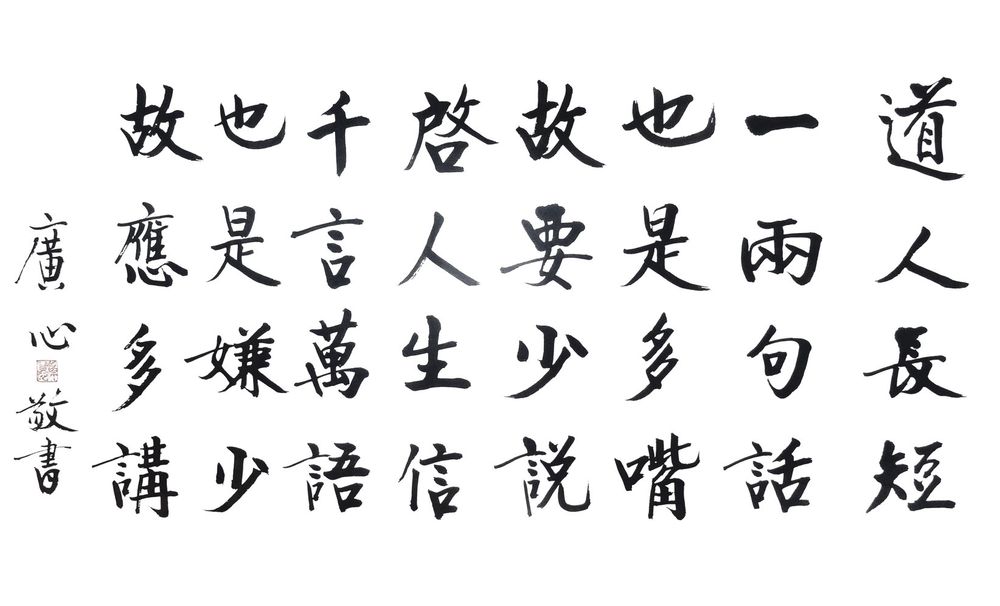 道人長短
一兩句話
也是多嘴
故要少説
啓人生信
千言萬語
也是嫌少
故應多講
廣心敬書